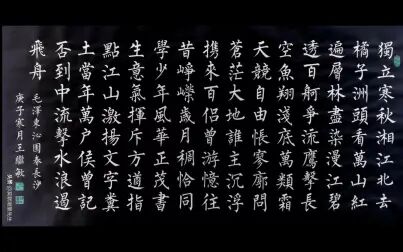 獨立寒秋湘江北去
橘子洲頭看萬山紅
遍層林盡染漫江碧
透百舸爭流鷹擊長
空魚翔淺底萬類霜
天競自由悵寥廓問
蒼茫大地誰主沉浮
携來百侣曾游憶往
昔崢嶸歲月稠恰同
學少年風華正茂書
生意氣揮斥方遒指
點江山激揚文字糞
土當年萬户侯曾記
否到中流擊水浪遏
飛舟
毛澤東沁園春長沙
庚子寒月王繼敏